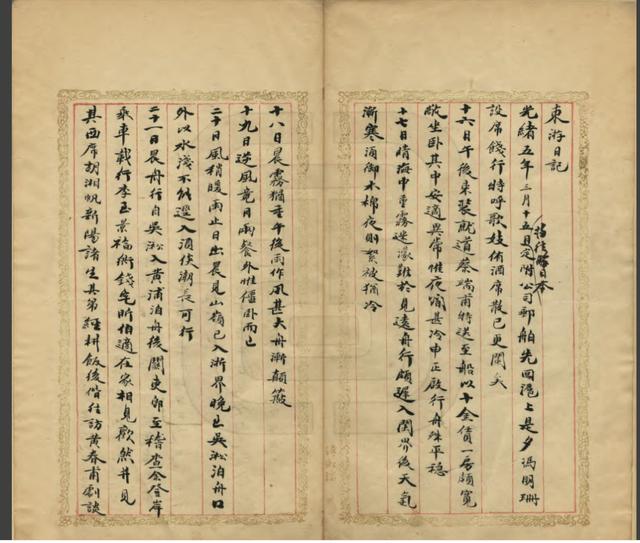 東游日記
光緒五年三月十五日定附公司郵舶先回滬上是夕馮明珊
擬往游日本
設席餞行特呼歌妓侑酒席散已更闌矣
十六日午後束裝就道蔡瑞甫特送至船以十金賃一房頗寬
敞坐卧其中安適異常惟夜窗甚冷申正啟行舟殊平穩
十七日晴海中重霧迷濛難於見遠舟行頗遲入閩界後天氣
漸寒酒御木棉夜則絮被猶冷
十八日晨霧猶重午後雨作風甚大舟漸顛簸
十九日逆風竟日兩餐外惟僵卧而已
二十日風稍暖雨止日出晨見山嶺已入浙界晚已吳淞泊舟口
外以水淺不能遲入酒俟潮長可行
二十一日晨舟行自吳淞入黃浦泊舟後關吏即至稽查余登岸
乘車載行李至景福衖錢昕伯適在家相見歡然并見
其西席胡湘帆新陽諸生其弟經耕飯後偕往訪黃春甫劇談